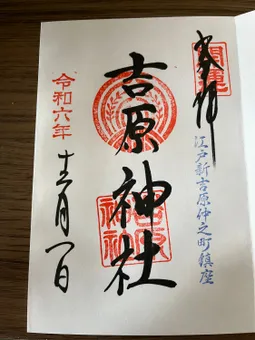 奉拝
開運
江戸新吉原仲之町鎮座
吉原神社
吉原神社
令和六年
十二月一日